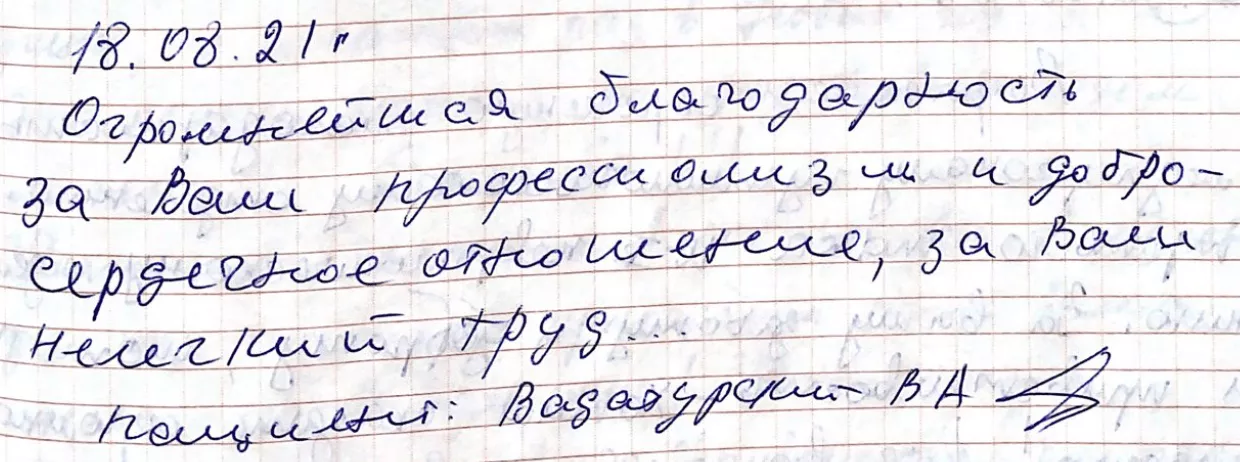 18.08.21 г
Огромнейшая благодарность
за Ваш профессионализм и добро-
сердечное отношение, за Ваш
нелегкий труд...
пациент: Вадатурский В А